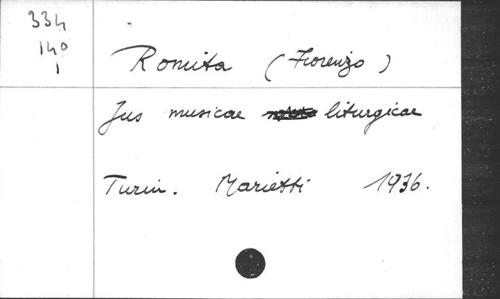 334
140
1
Romita (Fiorenzo)
Jus musicae liturgicae
Turin. Marietti 1936.